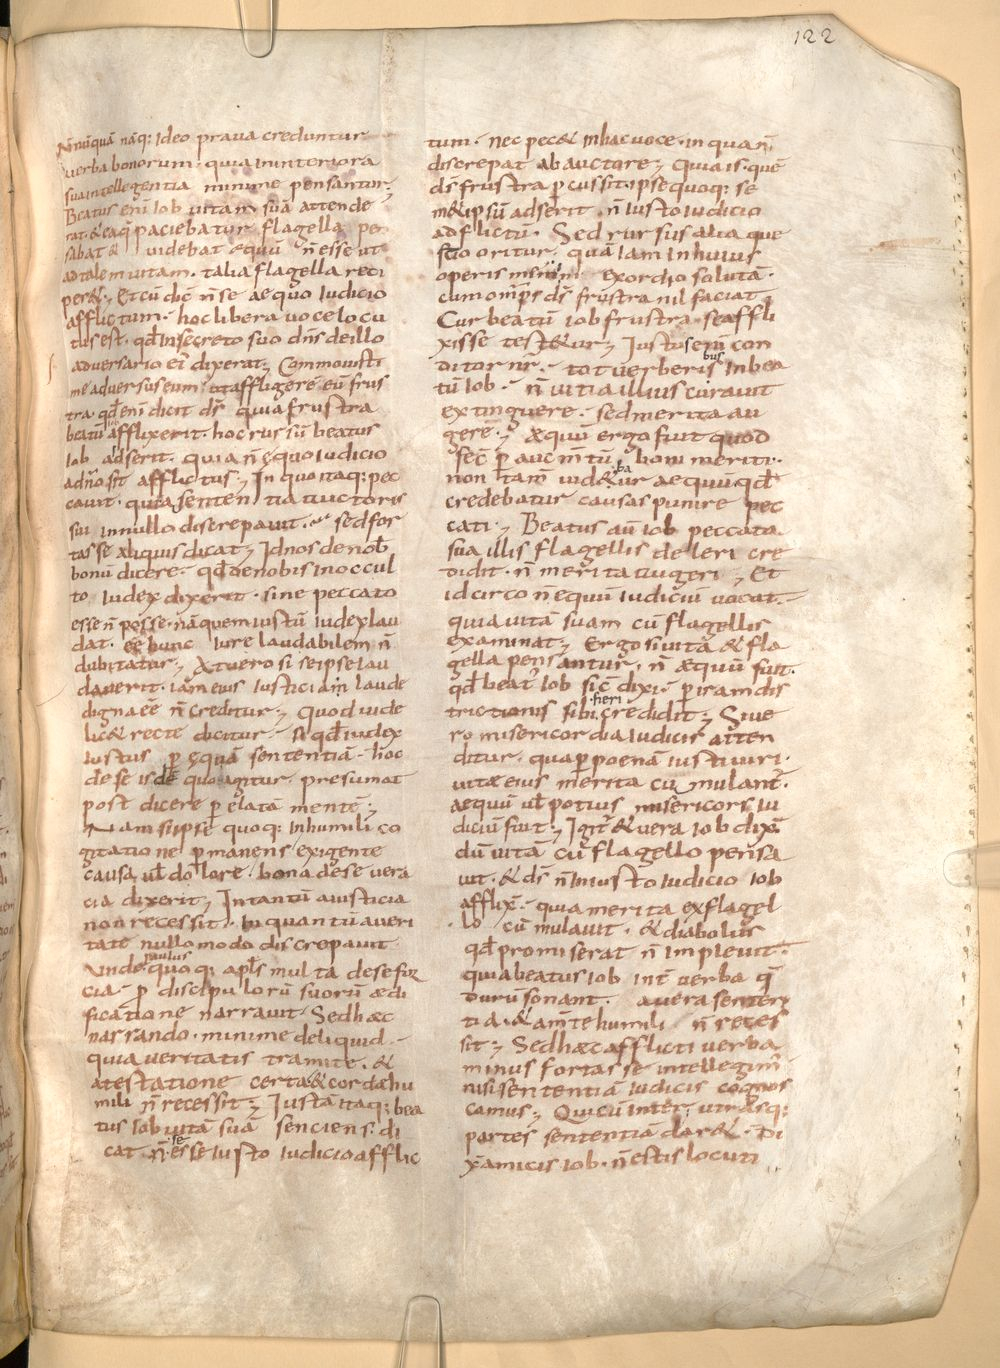 122
Nōnūquā nāq; ideo prava creduntur
verba bonorum· quia in interiora
sua intellegentia minime pensantur;
Beatus enī Iob vitam suā attende
rat· & eaq̄ paciebatur flagella pen
sabat & videbat equū n̄ esse ut
ad talem vitam· talia flagella reci
per&; Et cū dic̄ n̄ se aequo iudicio
afflictum· hoc libera voce locu
tus est· qđ in secreto suo dn̄s de illo
adversario ei dixerat; Commovisti
me adversus eum ut affligere eū frus
tra qđ enī dicit ds̄ quia frustra
beatū afflixerit· hoc rursū beatus
Iob adserit· quia n̄ ęquo iudicio
a dn̄o sit afflictus; In quo itaq; pec
cavit· quia sententia auctoris
sui in nullo discrepavit· sed for
tasse aliquis dicat; Id nos de nob̄
bonū dicere· qđ de nobis in occul
to iudex dixerit· sine peccato
esse n̄ posse· nā quem iustū iudex lau
dat· eē hunc iure laudabilem n̄
dubitatur; At vero si se ipse lau
daverit· iam eius iusticiam laude
digna eē n̄ creditur; Quod vide
lic& recte dicitur· si qđ iudex
iustus p ęquā sententiā· hoc
de se isde quo agitur presumat
post dicere p elatā mentē;
Nam si ipse quoq; in humili co
gitatione pmanens exigente
causa vl̄ dolore· bona de se vera
cia dixerit; In tantū a iusticia
non recessit· in quantū a veri
tate nullo modo discrepavit
paulus
Unde quoq; apl̄s multa de se for
cia· p discipulorū suorū ædi
ficatione narravit· Sed hæc
narrando· minime deliquid·
quia veritatis tramite· &
atestatione certa & corde hu
mili n̄ recessit; Iustā itaq; bea
tus Iob vitā suā senciens· di
se
cat· n̄ esse iusto iudicio afflic
tum· nec pec& in hac voce· in qua n̄
discrepat ab auctore; Quia is· quē
ds̄ frustra pcussit· ipse quoq; se
m&ipsū adserit n̄ iusto iudicio
adflictū· Sed rursus alia que
stio oritur· quā iam in huius
operis exordio solutā·
cum omīps ds̄ frustra nil faciat
Cur beatū Iob frustra se affli
xisse test&ur; Iustus eni con
ditor nr̄· tot verberis in bea
bus
tū Iob· n̄ vitia illius curavit
extinguere· sed merita au
gerē; Æquū ergo fuit quod
fec̄ p aucmtū boni meriti·
ba
non tam̄ vid&ur aequū qđ
credebatur causas punire pec
cati; Beatus aū Iob peccata
sua illis flagellis deleri cre
didit· n̄ merita augeri; Et
idcirco n̄ equū iudiciū vocat·
quia vitā suam cū flagellis
examinat; Ergo si vita & fla
gella pensantur· n̄ æquū fuit·
qđ beat' Iob sic̄ dixi· p iram dis
fieri
trictionis sibi credidit; Si ve
ro misericordia iudicis atten
ditur· qua p poenā iusti viri·
vitæ eius merita cumulant'·
aequū vl̄ potius misericors iu
diciū fuit; Igit' & vera Iob dix̄
dū vitā cū flagello pensa
vit· & ds̄ n̄ iniusto iudicio Iob
afflix̄· quia merita ex flagel
lo cūmulavit· & diabolus
qđ promiserat n̄ implevit·
quia beatus Iob int' verba q̄
durū sonant· a vera senten
tia· & am̄te humili n̄ reces
sit; Sed hæc afflicti verba
minus fortasse intellegim'
nisi sententiā iudicis cognos
camus; Qui cū inter utrasq;
partes sententiā dar&· Di
x̄ amicis Iob· n̄ estis locuti